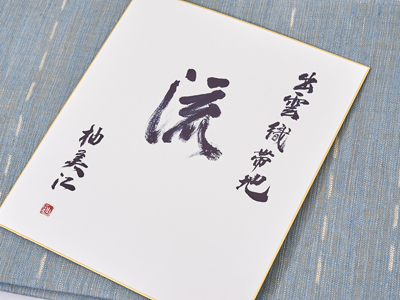 出雲織帯地
流
柚美江